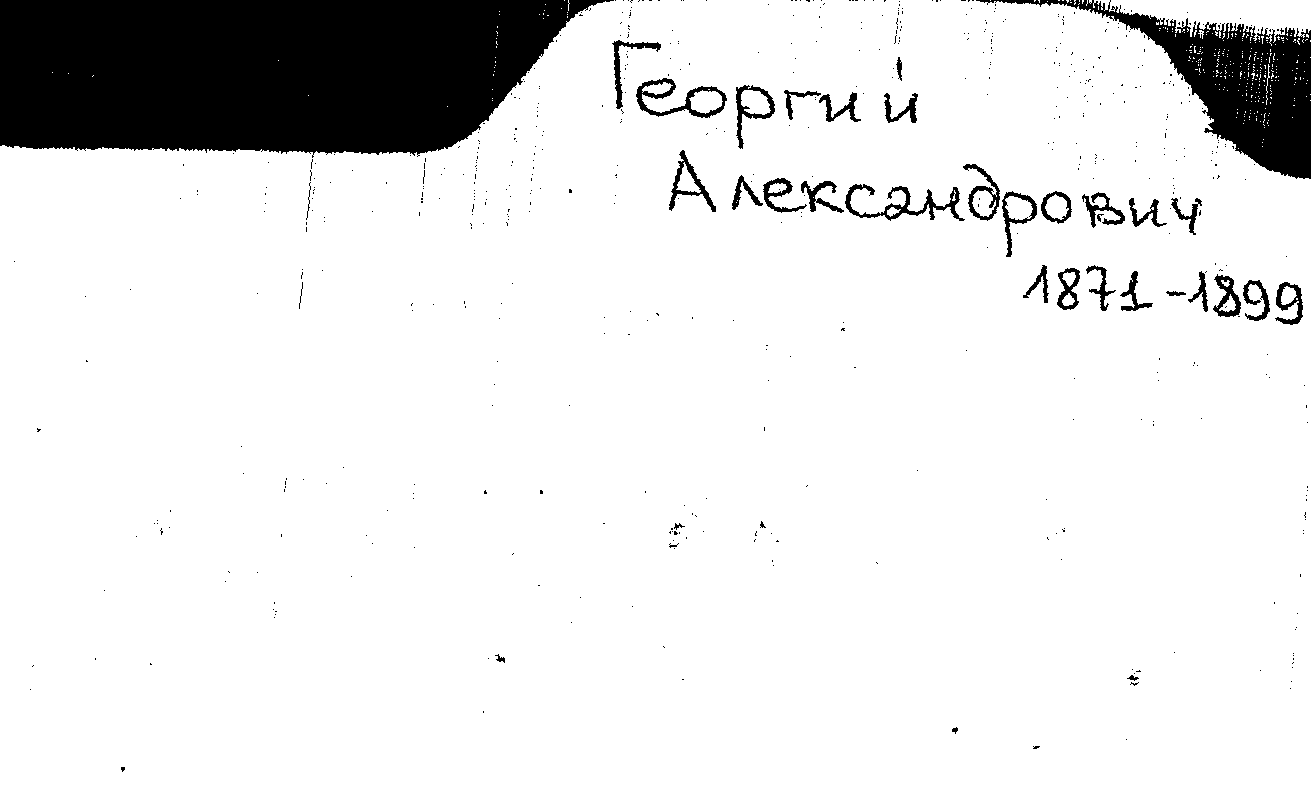 Георгий
Александрович
1871-1899